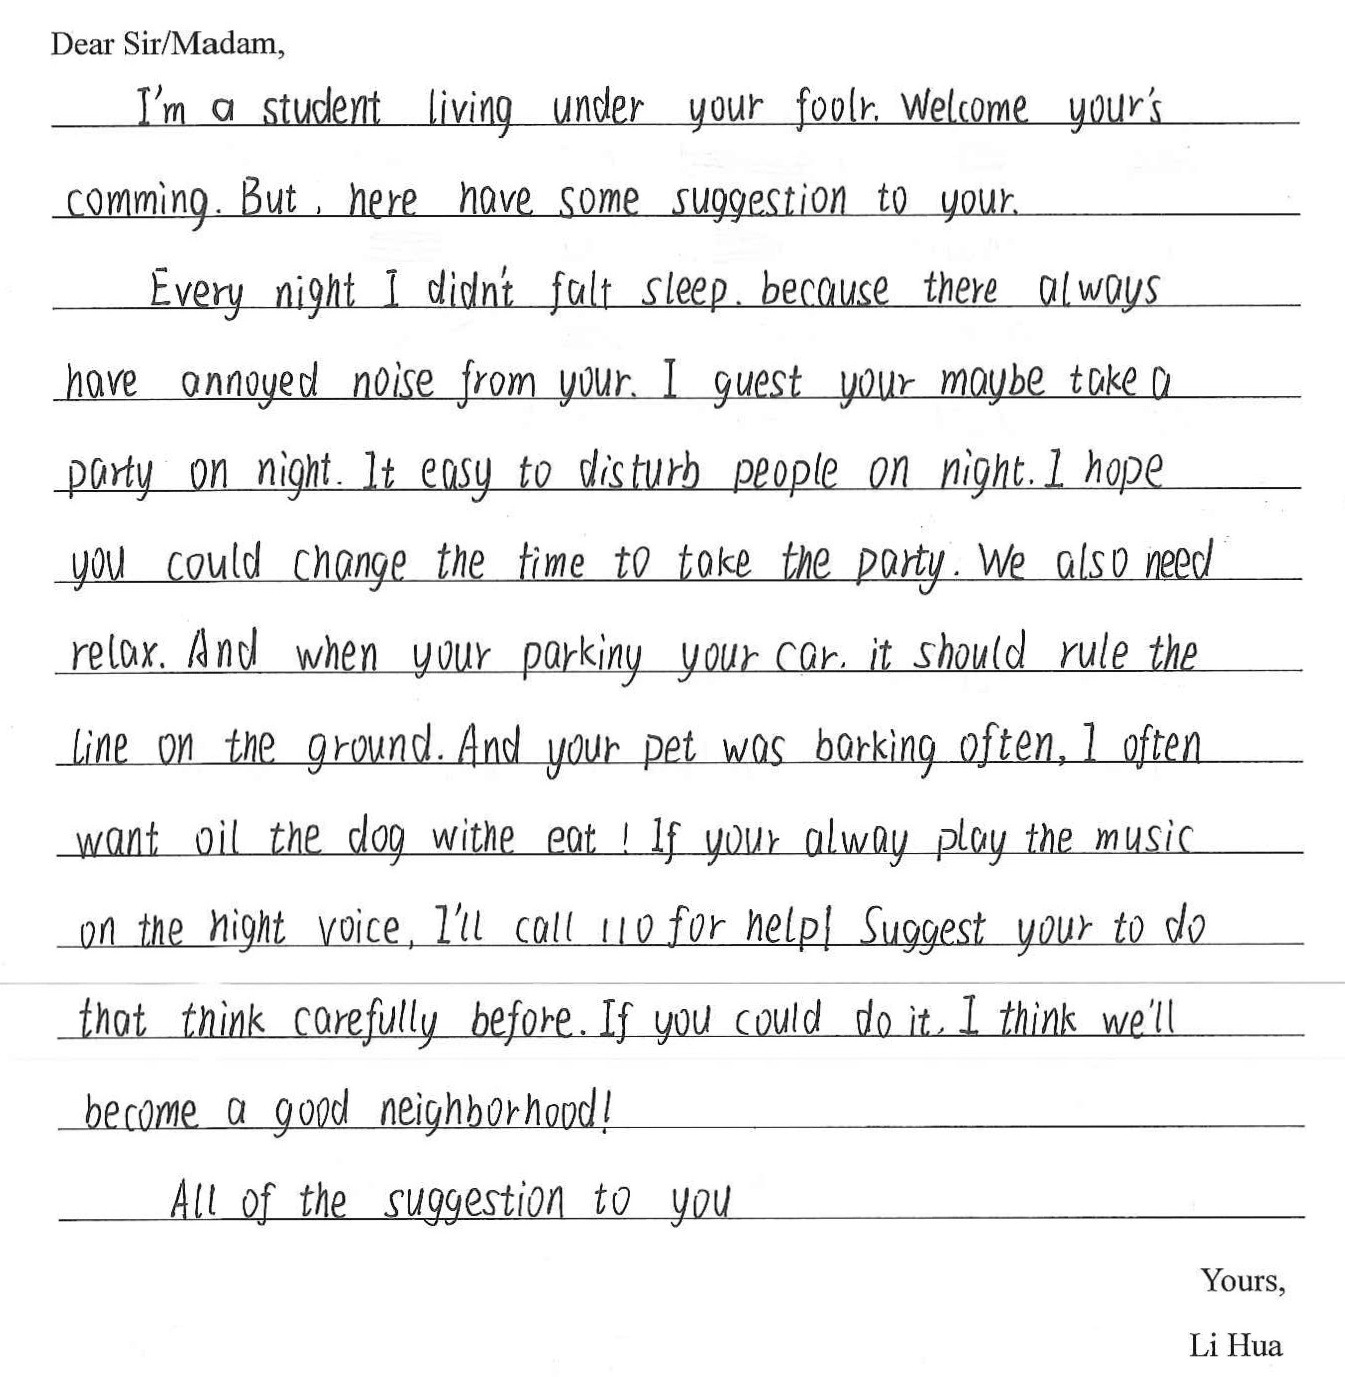 Dear Sir/Madam,
I'm a student living under your foolr. Welcome your's
comming. But, here have some suggestion to your.
Every night I didn't falt sleep. because there always
have annoyed noise from your. I guest your maybe take a
party on night. It easy to disturb people on night. I hope
you could change the time to take the party. We also need
relax. And when your parking your car. it should rule the
line on the ground. And your pet was barking often, I often
want oil the dog withe eat! If your alway play the music
on the hight voice, I'll call 110 for help! Suggest your to do
that think carefully before. If you could do it, I think we'll
become a good neighborhood!
All of the suggestion to you
Yours,
Li Hua